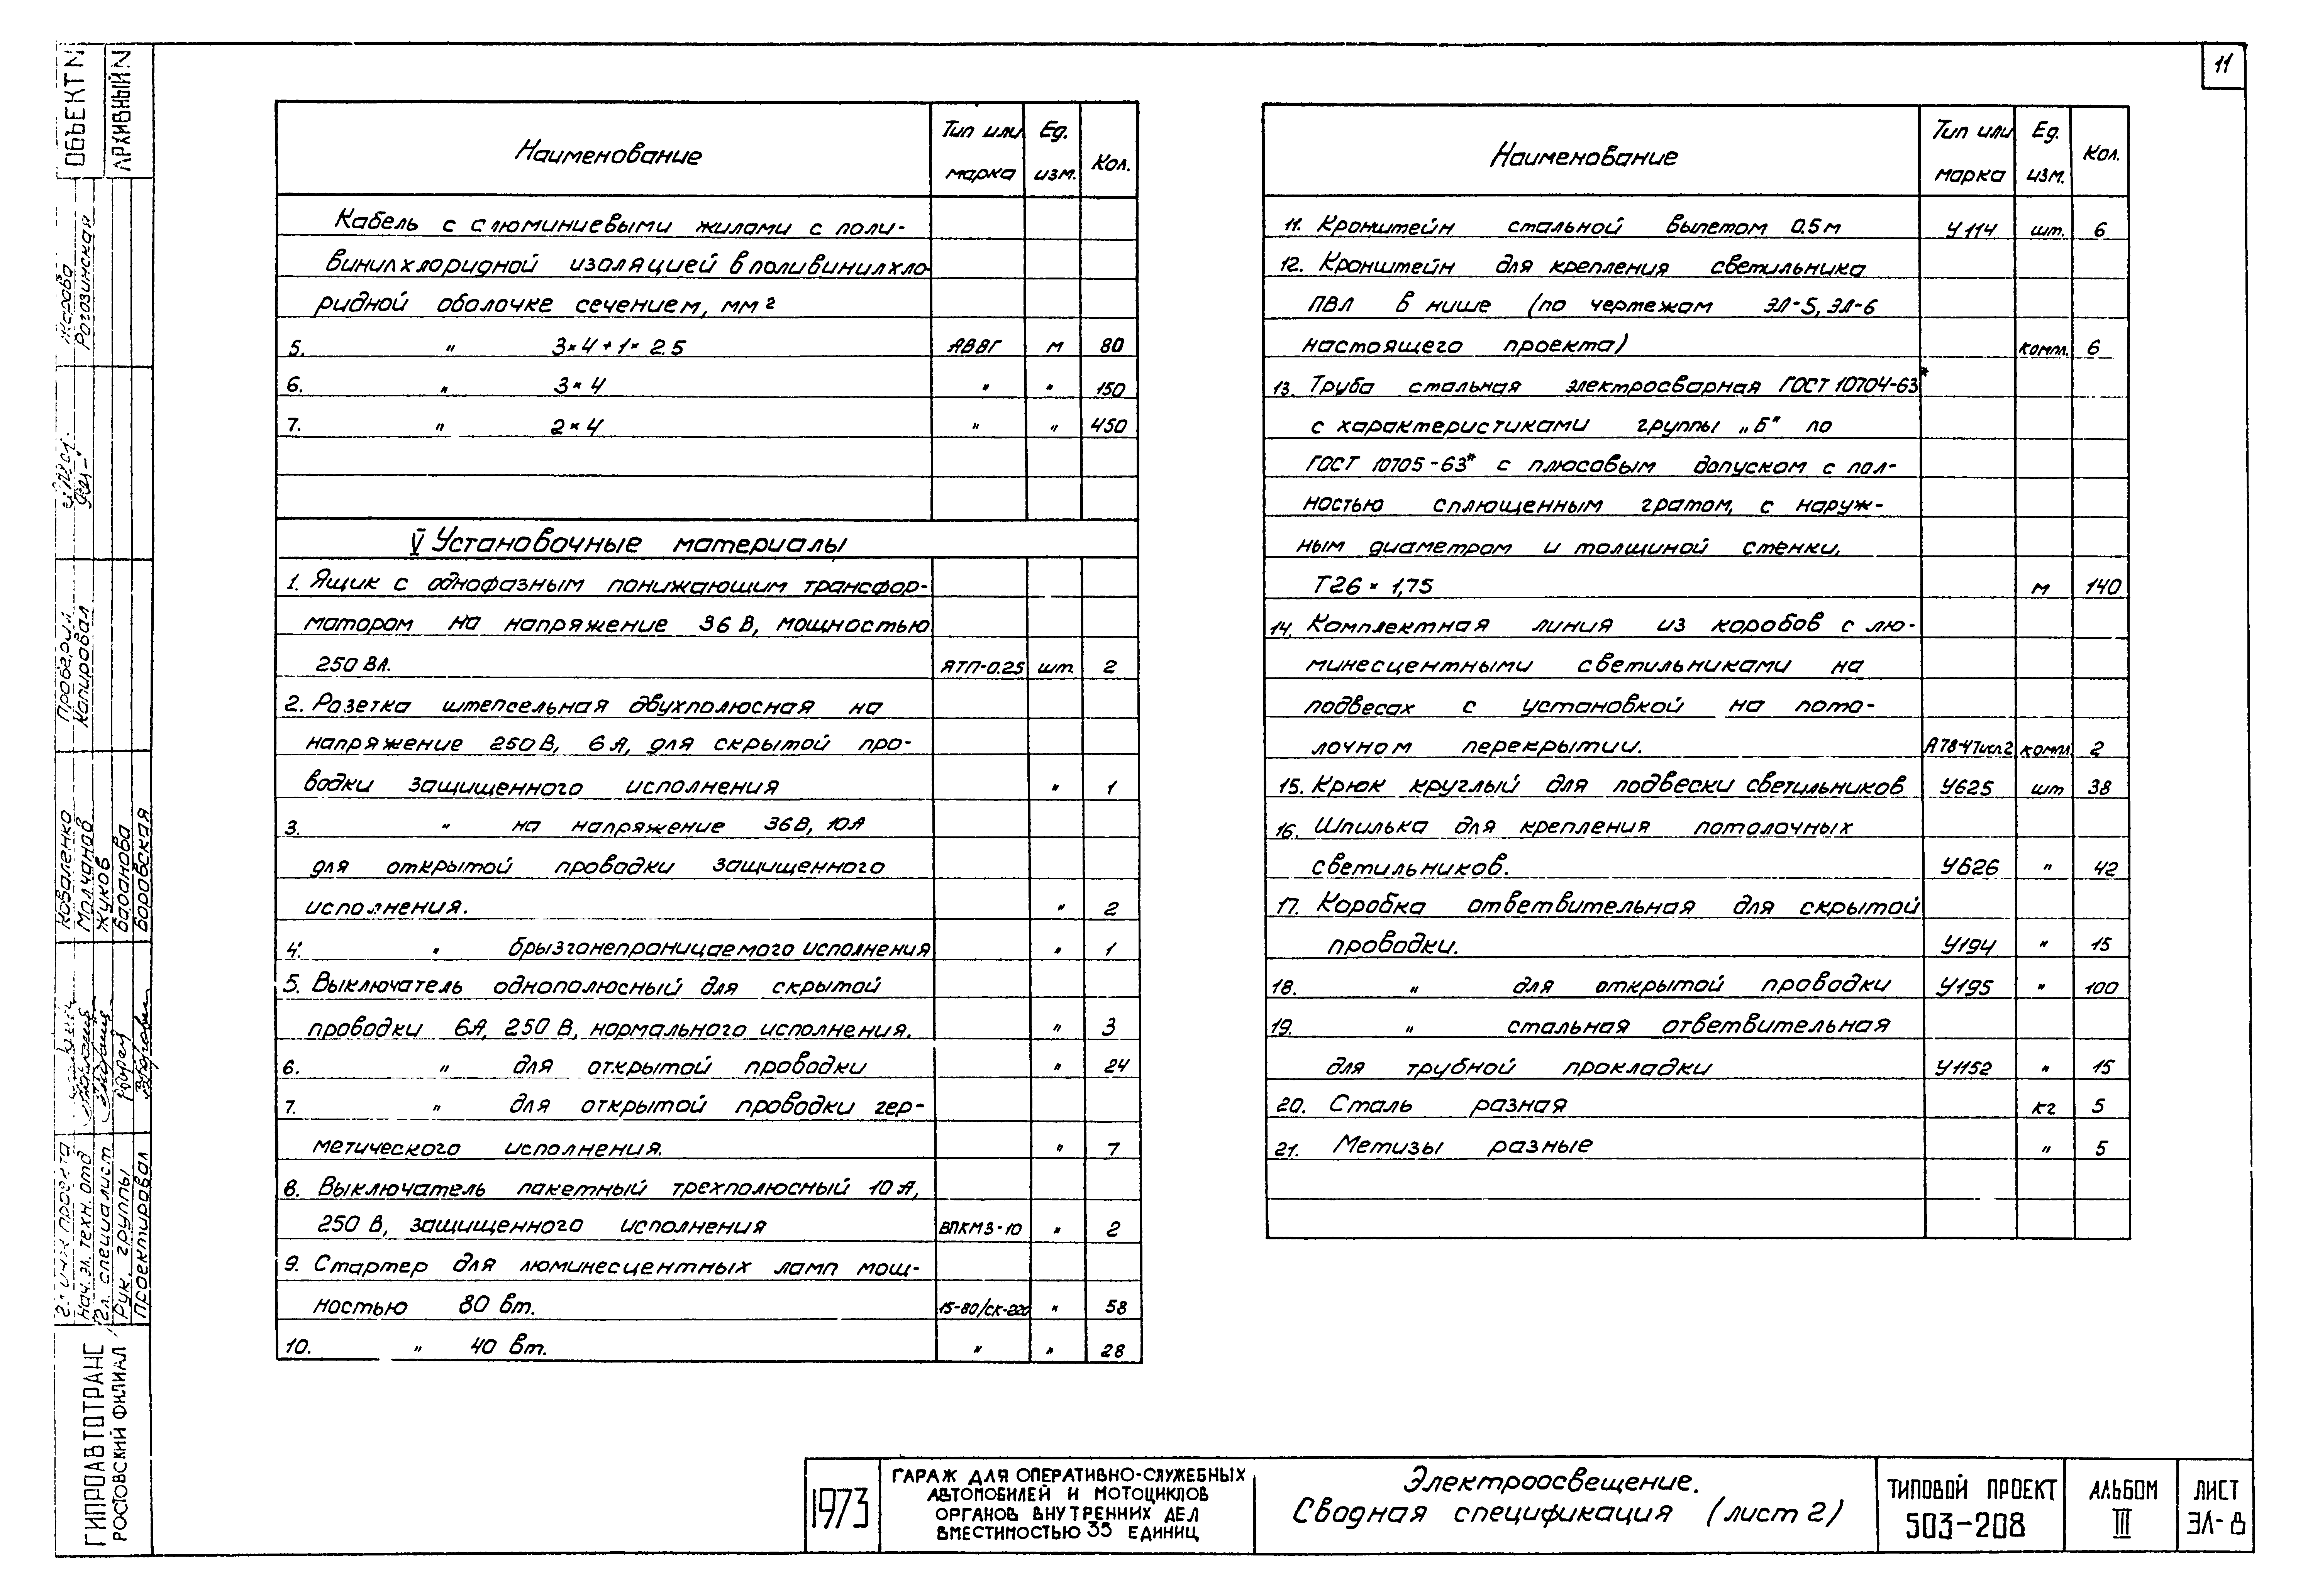 11
ОБЪЕКТ N
АРХИВНЫЙ N
Наименование Тип или марка Ед. изм. Кол.
Кабель с алюминиевыми жилами с поли-
винилхлоридной изоляцией в поливинилхло
ридной оболочке сечением, мм²
5. " 3×4+1×2.5 АВВГ м 80
6. " 3×4 " " 150
7. " 2×4 " " 450
V Установочные материалы
1. Ящик с однофазным понижающим трансфор-
матором на напряжение 36 В, мощностью
250 ВА. ЯТП-0.25 шт. 2
2. Розетка штепсельная двухполюсная на
напряжение 250 В, 6 А, для скрытой про-
водки защищенного исполнения " 1
3. " на напряжение 36 В, 10 А
для открытой проводки защищенного
исполнения. " 2
4. " брызгонепроницаемого исполнения " 1
5. Выключатель однополюсный для скрытой
проводки 6А, 250 В, нормального исполнения. " 3
6. " для открытой проводки " 24
7. " для открытой проводки гер-
метического исполнения. " 7
8. Выключатель пакетный трехполюсный 10 А,
250 В, защищенного исполнения ВПКМ3-10 " 2
9. Стартер для люминесцентных ламп мощ-
ностью 80 вт. 15-80/СК-220 " 58
10. " 40 вт. " " 28
Наименование Тип или марка Ед. изм. Кол.
11. Кронштейн стальной вылетом 0.5 м У114 шт. 6
12. Кронштейн для крепления светильника
ПВЛ в нише (по чертежам ЭЛ-5, ЭЛ-6
настоящего проекта) компл. 6
13. Труба стальная электросварная ГОСТ 10704-63*
с характеристиками группы „Б" по
ГОСТ 10705-63* с плюсовым допуском с пол-
ностью сплющенным гратом, с наруж-
ным диаметром и толщиной стенки,
Т26×1,75 м 140
14. Комплектная линия из коробов с лю-
минесцентными светильниками на
подвесах с установкой на пото-
лочном перекрытии. компл. 2
15. Крюк круглый для подвески светильников У625 шт 38
16. Шпилька для крепления потолочных
светильников. У626 " 42
17. Коробка ответвительная для скрытой
проводки. У194 " 15
18. " для открытой проводки У195 " 100
19. " стальная ответвительная
для трубной прокладки У1152 " 15
20. Сталь разная кг 5
21. Метизы разные " 5
Жарова
Рогозинская
Проверил
Копировал
Коваленко
Молчанов
Жуков
Баранова
Боровская
Гл. инж. проекта
Нач. эл. техн. отд
Гл. специалист
Рук. группы
Проектировал
ГИПРОАВТОТРАНС
РОСТОВСКИЙ ФИЛИАЛ
1973
ГАРАЖ ДЛЯ ОПЕРАТИВНО-СЛУЖЕБНЫХ
АВТОМОБИЛЕЙ И МОТОЦИКЛОВ
ОРГАНОВ ВНУТРЕННИХ ДЕЛ
ВМЕСТИМОСТЬЮ 35 ЕДИНИЦ
Электроосвещение.
Сводная спецификация (лист 2)
ТИПОВОЙ ПРОЕКТ
503-208
АЛЬБОМ
III
ЛИСТ
ЭЛ-8